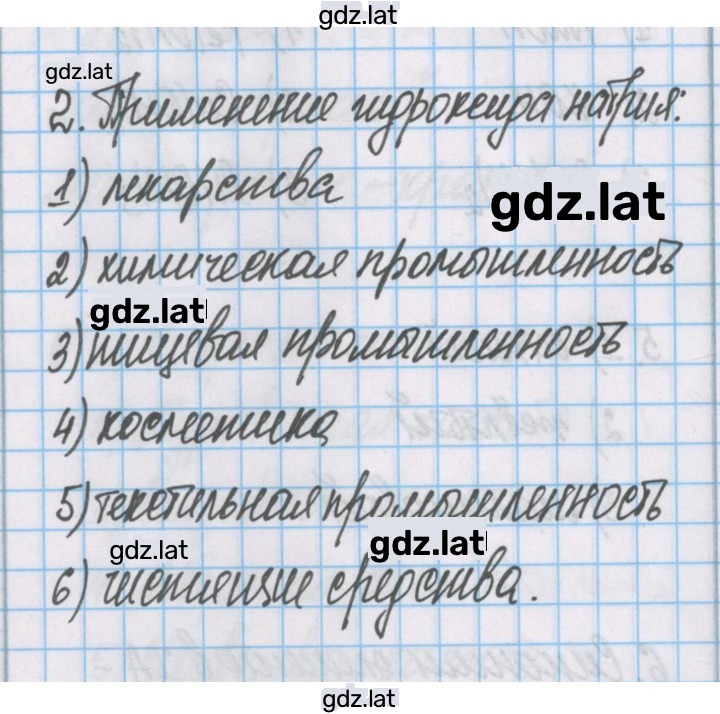 gdz.lat
gdz.lat
2. Применение гидроксида натрия:
1) лекарства
gdz.lat
2) химическая промышленность
gdz.lat
3) пищевая промышленность
4) косметика
5) текстильная промышленность
gdz.lat
gdz.lat
6) чистящие средства.
gdz.lat